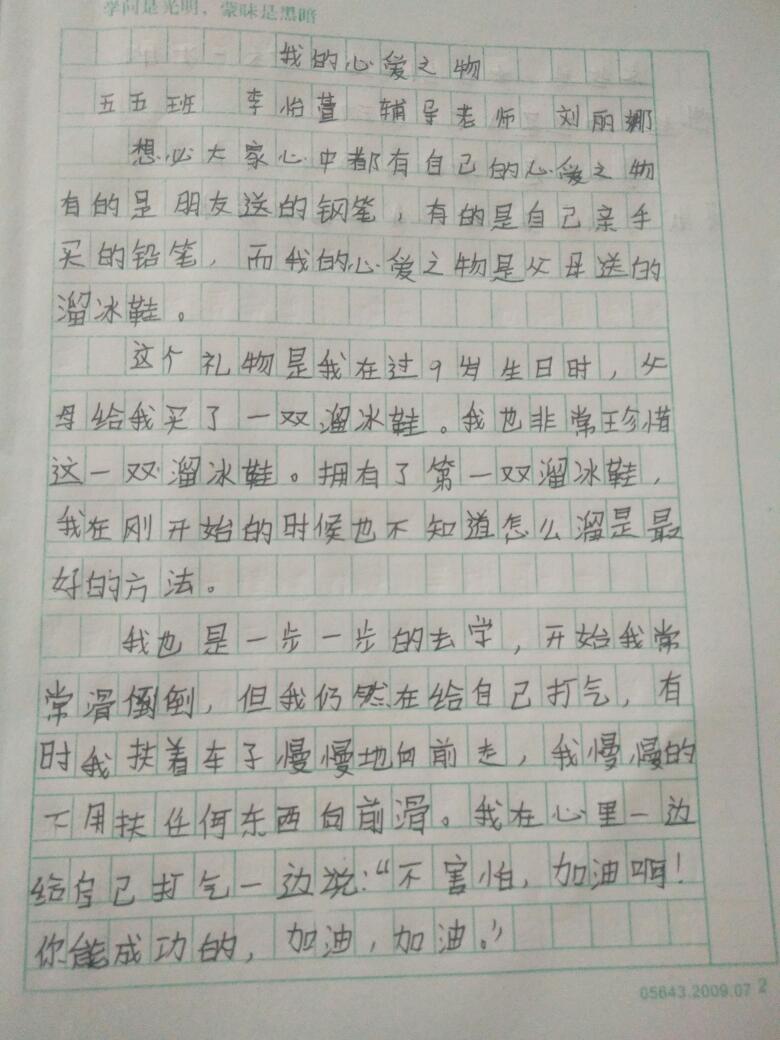 学问是光明，蒙昧是黑暗
我的心爱之物
五五班 李怡萱 辅导老师 刘丽娜
想必大家心中都有自己的心爱之物
有的是朋友送的钢笔，有的是自己亲手
买的铅笔，而我的心爱之物是父母送的
溜冰鞋。
这个礼物是我在过9岁生日时，父
母给我买了一双溜冰鞋。我也非常珍惜
这一双溜冰鞋。拥有了第一双溜冰鞋，
我在刚开始的时候也不知道怎么溜是最
好的方法。
我也是一步一步的去学，开始我常
常滑倒倒，但我仍然在给自己打气，有
时我扶着车子慢慢地向前走，我慢慢的
不用扶任何东西向前滑。我在心里一边
给自己打气一边说：“不害怕，加油啊！
你能成功的，加油，加油。”
05643.2009.07 2